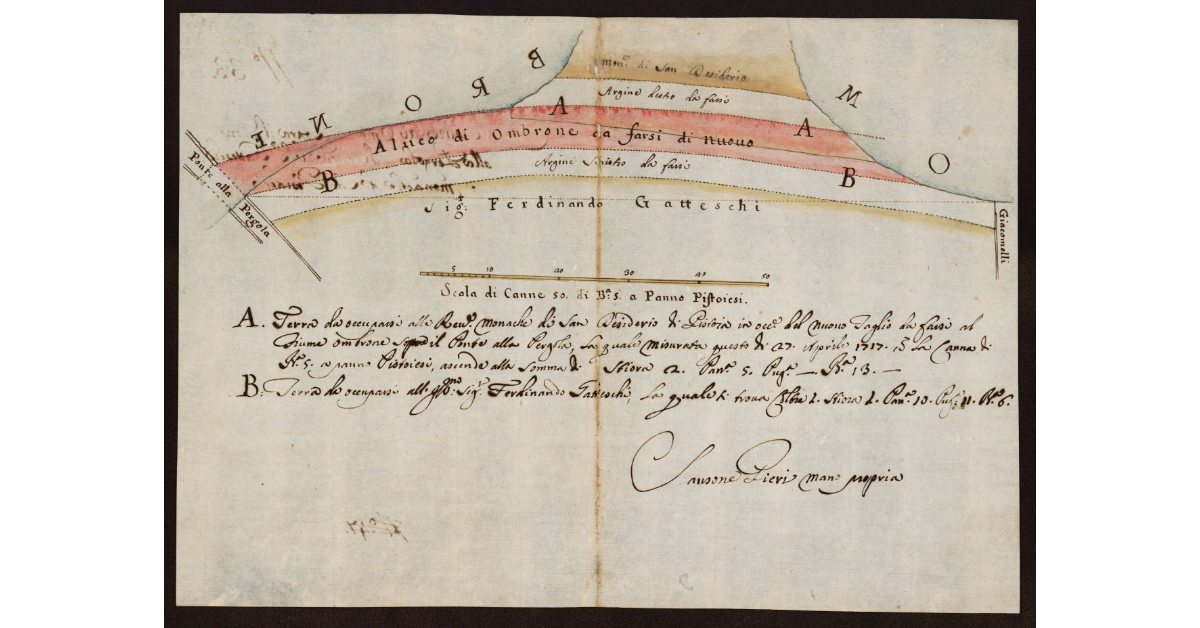 OMBRONE
mon.e di San Desiderio
Argine destro da farsi
A A
Alveo di Ombrone da farsi di nuovo
Argine Sinistro da farsi
B B
Sig.r Ferdinando Gatteschi
Ponte alla Pergola
Giacomelli
5 10 20 30 40 50
Scala di Canne 50. di B.a 5. a Panno Pistoiesi.
A. Terra da occuparsi alle Reu.e Monache di San Desiderio di Pistoia in occ.e del Nuovo Taglio da farsi al
fiume Ombrone il Ponte alla Pergola, la quale misurata questo di 27. Aprile 1717. la Canna di
B.a 5. a panno Pistoiesi, ascende alla somma di Stiora 2. Pan.a 5. Pug.a — B.a 13. —
B. Terra da occuparsi all Sig.r Ferdinando Gatteschi, la quale si trova Stiora 1. Pan.a 10. Pug.a 11. B.a 6.
Sansone Pieri mano propria